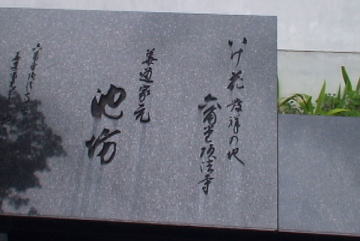 いけ花発祥の地
六角堂頂法寺
華道家元
池坊